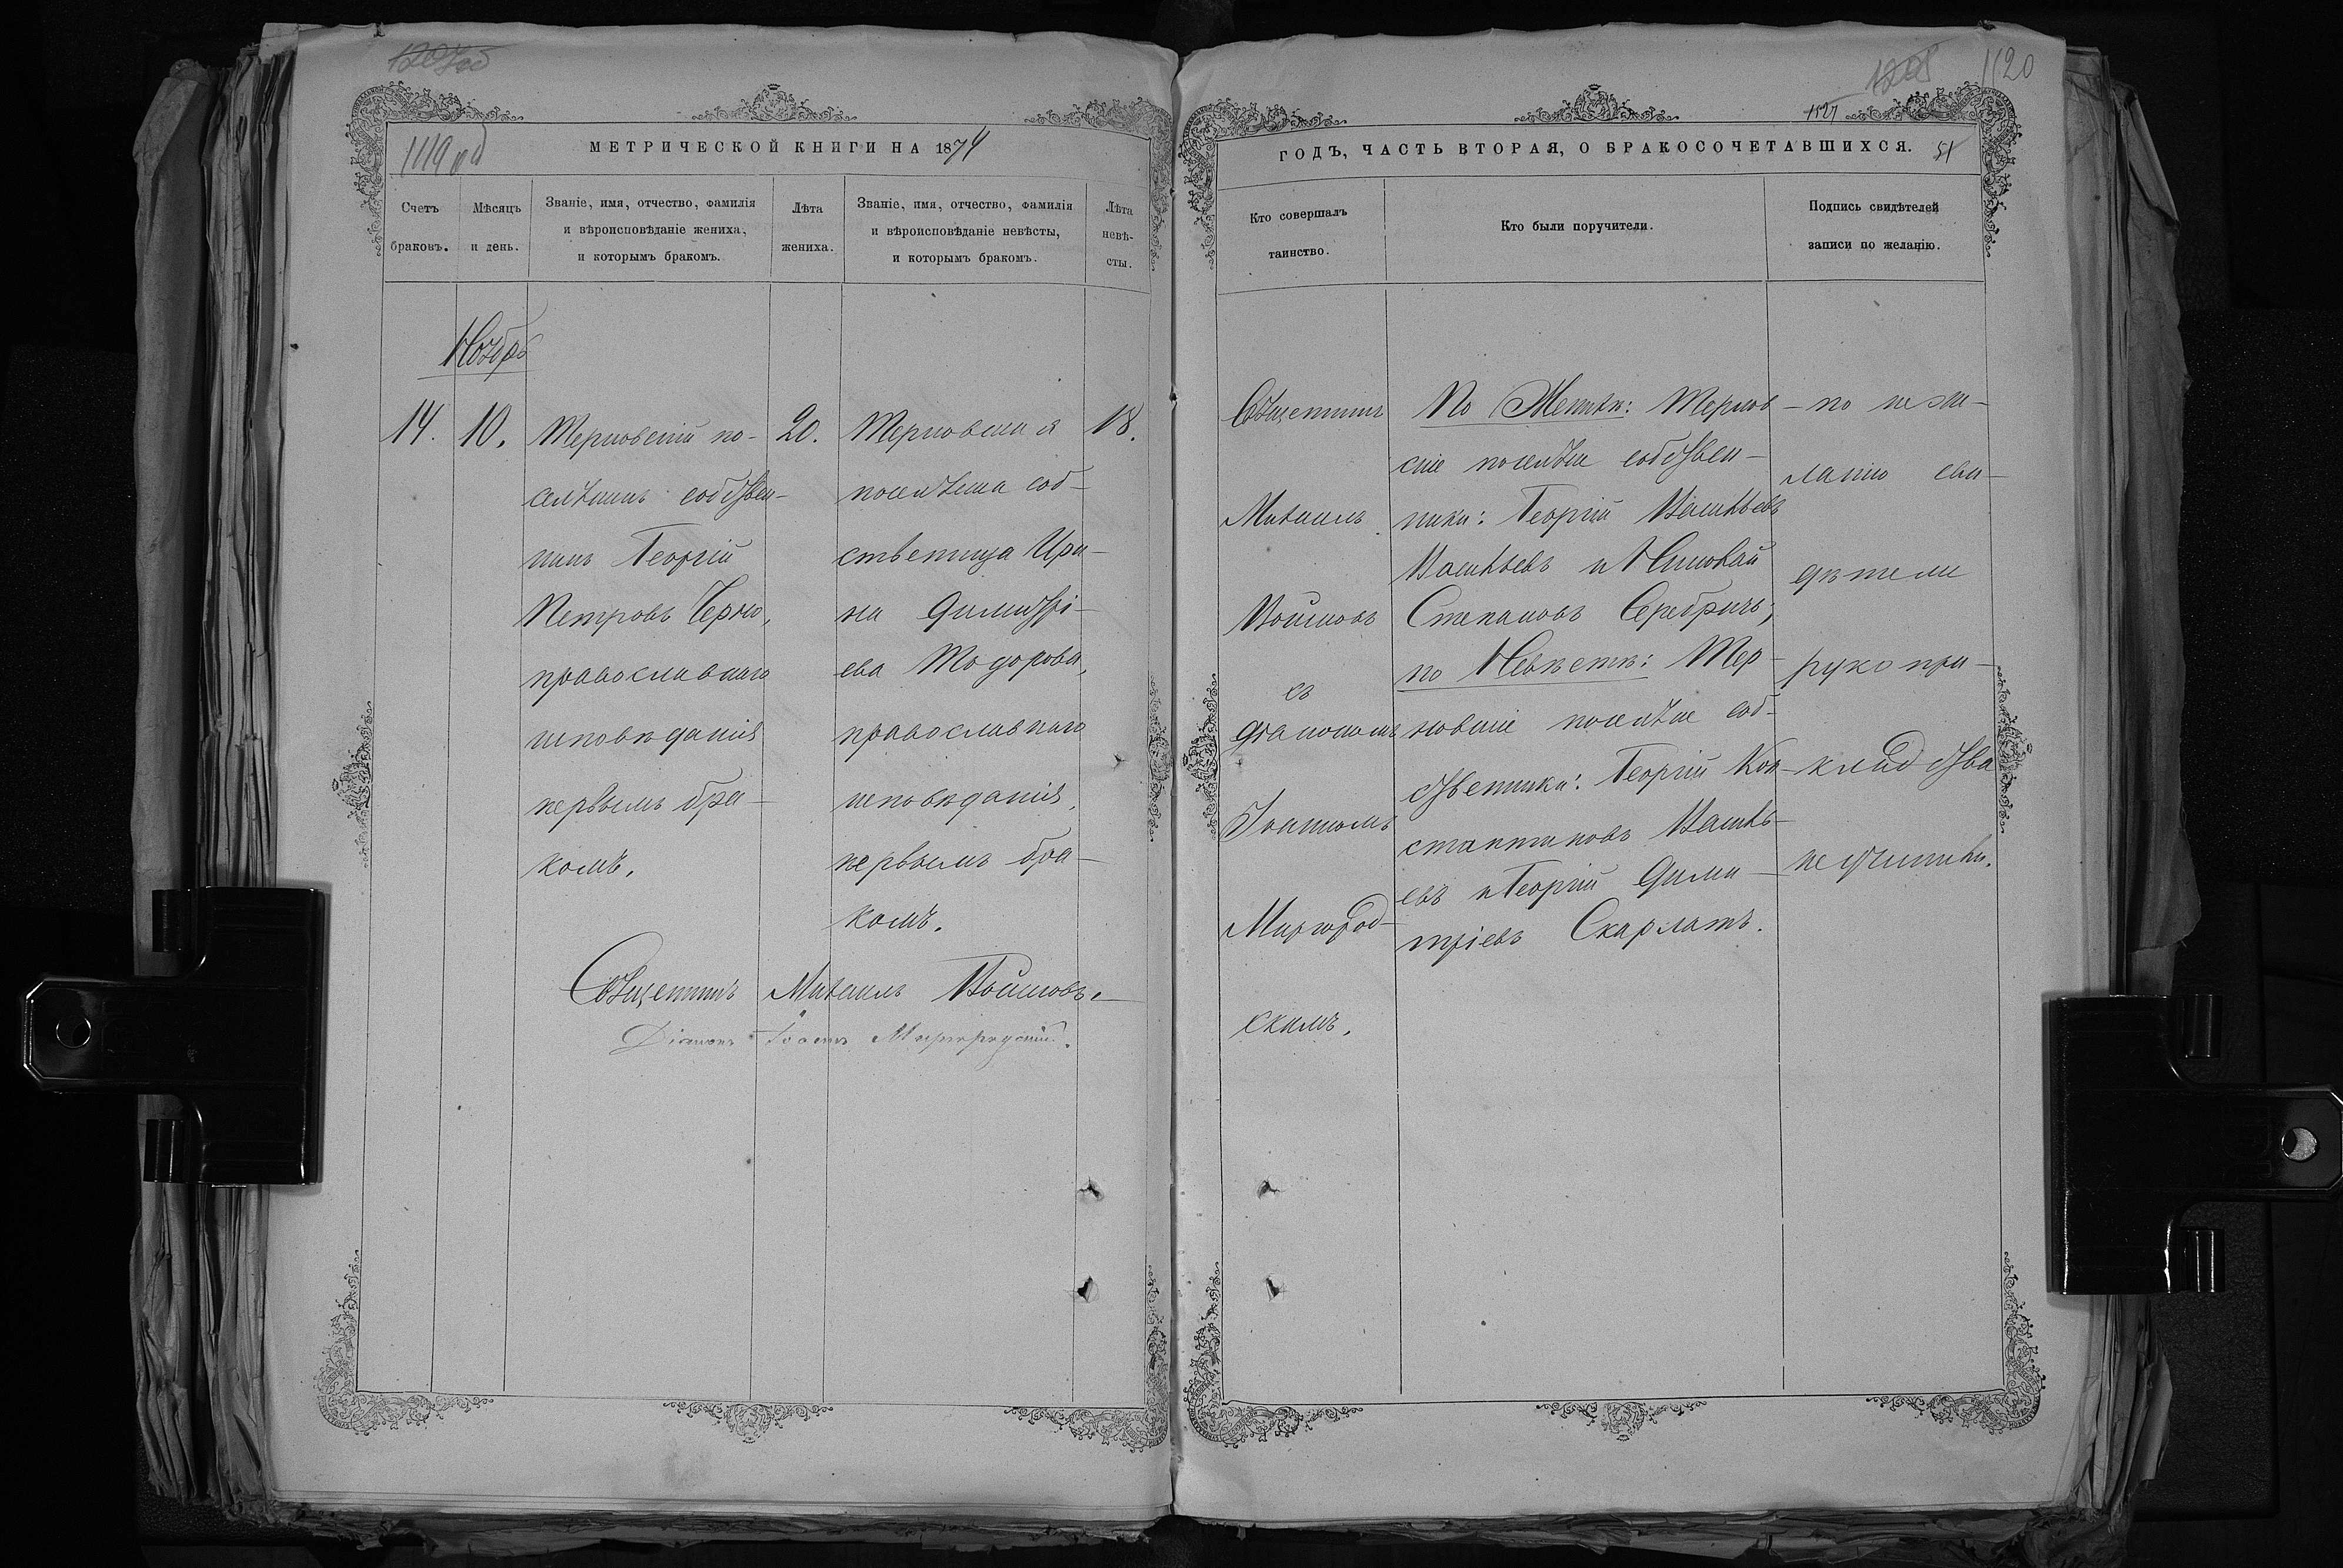 1119 об
МЕТРИЧЕСКОЙ КНИГИ НА 1874
Счетъ браковъ.
Мѣсяцъ и день.
Званіе, имя, отчество, фамилія
и вѣроисповѣданіе жениха,
и которымъ бракомъ.
Лѣта
жениха.
Званіе, имя, отчество, фамилія
и вѣроисповѣданіе невѣсты,
и которымъ бракомъ.
Лѣта
невѣ-
сты.
Ноябрь
14.
10.
Терновскій по-
селянинъ собствен-
никъ Георгій
Петровъ Черно,
православнаго
исповѣданія
первымъ бра-
комъ.
20.
Терновская
поселянка соб-
ственница Ири-
на Димитрі-
ева Тодорова,
православнаго
исповѣданія,
первымъ бра-
комъ.
18.
Священникъ Михаилъ Войновъ.
Діаконъ Іоаннъ Миргородскій.
1120
1527
ГОДЪ, ЧАСТЬ ВТОРАЯ, О БРАКОСОЧЕТАВШИХСЯ.
51
Кто совершалъ
таинство.
Кто были поручители.
Подпись свидѣтелей
записи по желанію.
Священникъ
Михаилъ
Войновъ
съ
діакономъ
Іоанномъ
Миргород-
скимъ.
По Женихѣ: Тернов-
скіе поселяне собствен-
ники: Георгій Васильевъ
Васильевъ и Николай
Степановъ Серебринъ;
по Невѣстѣ: Тер-
новскіе поселяне соб-
ственники: Георгій Кон-
стантиновъ Василь-
евъ и Георгій Дими-
тріевъ Скарлатъ.
по неже-
ланію сви-
дѣтели
рукопри-
кладства
не учинили.